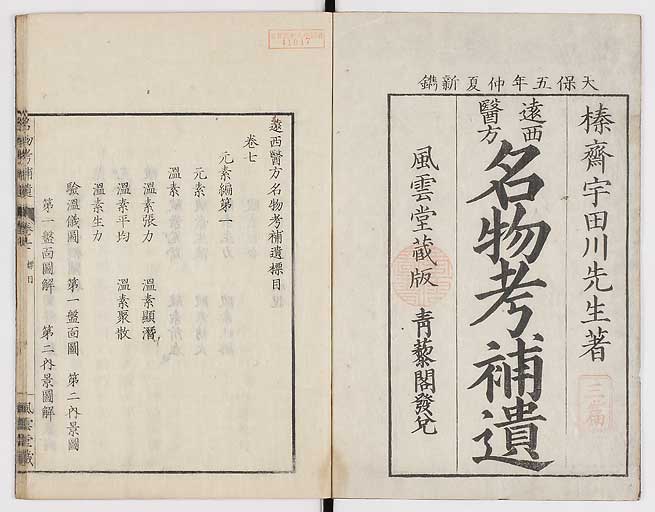 天保五年仲夏新鐫
榛齋宇田川先生著
遠西
醫方
名物考補遺
三篇
風雲堂藏版
青藜閣發兌
遠西醫方名物考補遺標目
卷七
元素編第一
元素
溫素
溫素張力　溫素顯潛
溫素平均　溫素聚散
溫素生力
驗溫儀圖　第一盤面圖　第二內景圖
第一盤面圖解　第二內景圖解
名物考補遺
標目
風雲堂藏
41017